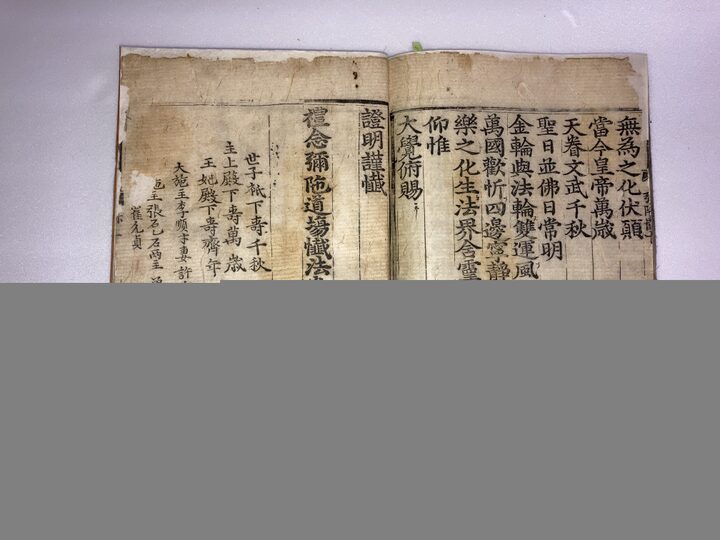 無爲之化伏願
當今皇帝萬歳
天眷文武千秋
聖日並佛日常明
金輪與法輪雙運風
萬國歡忻四邊寧静
樂之化生法界含靈
仰惟
大覺俯賜
證明謹懺
禮念彌陁道場懺法
世子邸下壽千秋
主上殿下壽萬歳
王妃殿下壽齊年
大施主李順才妻許
施主張乭石兩主
崔允貞